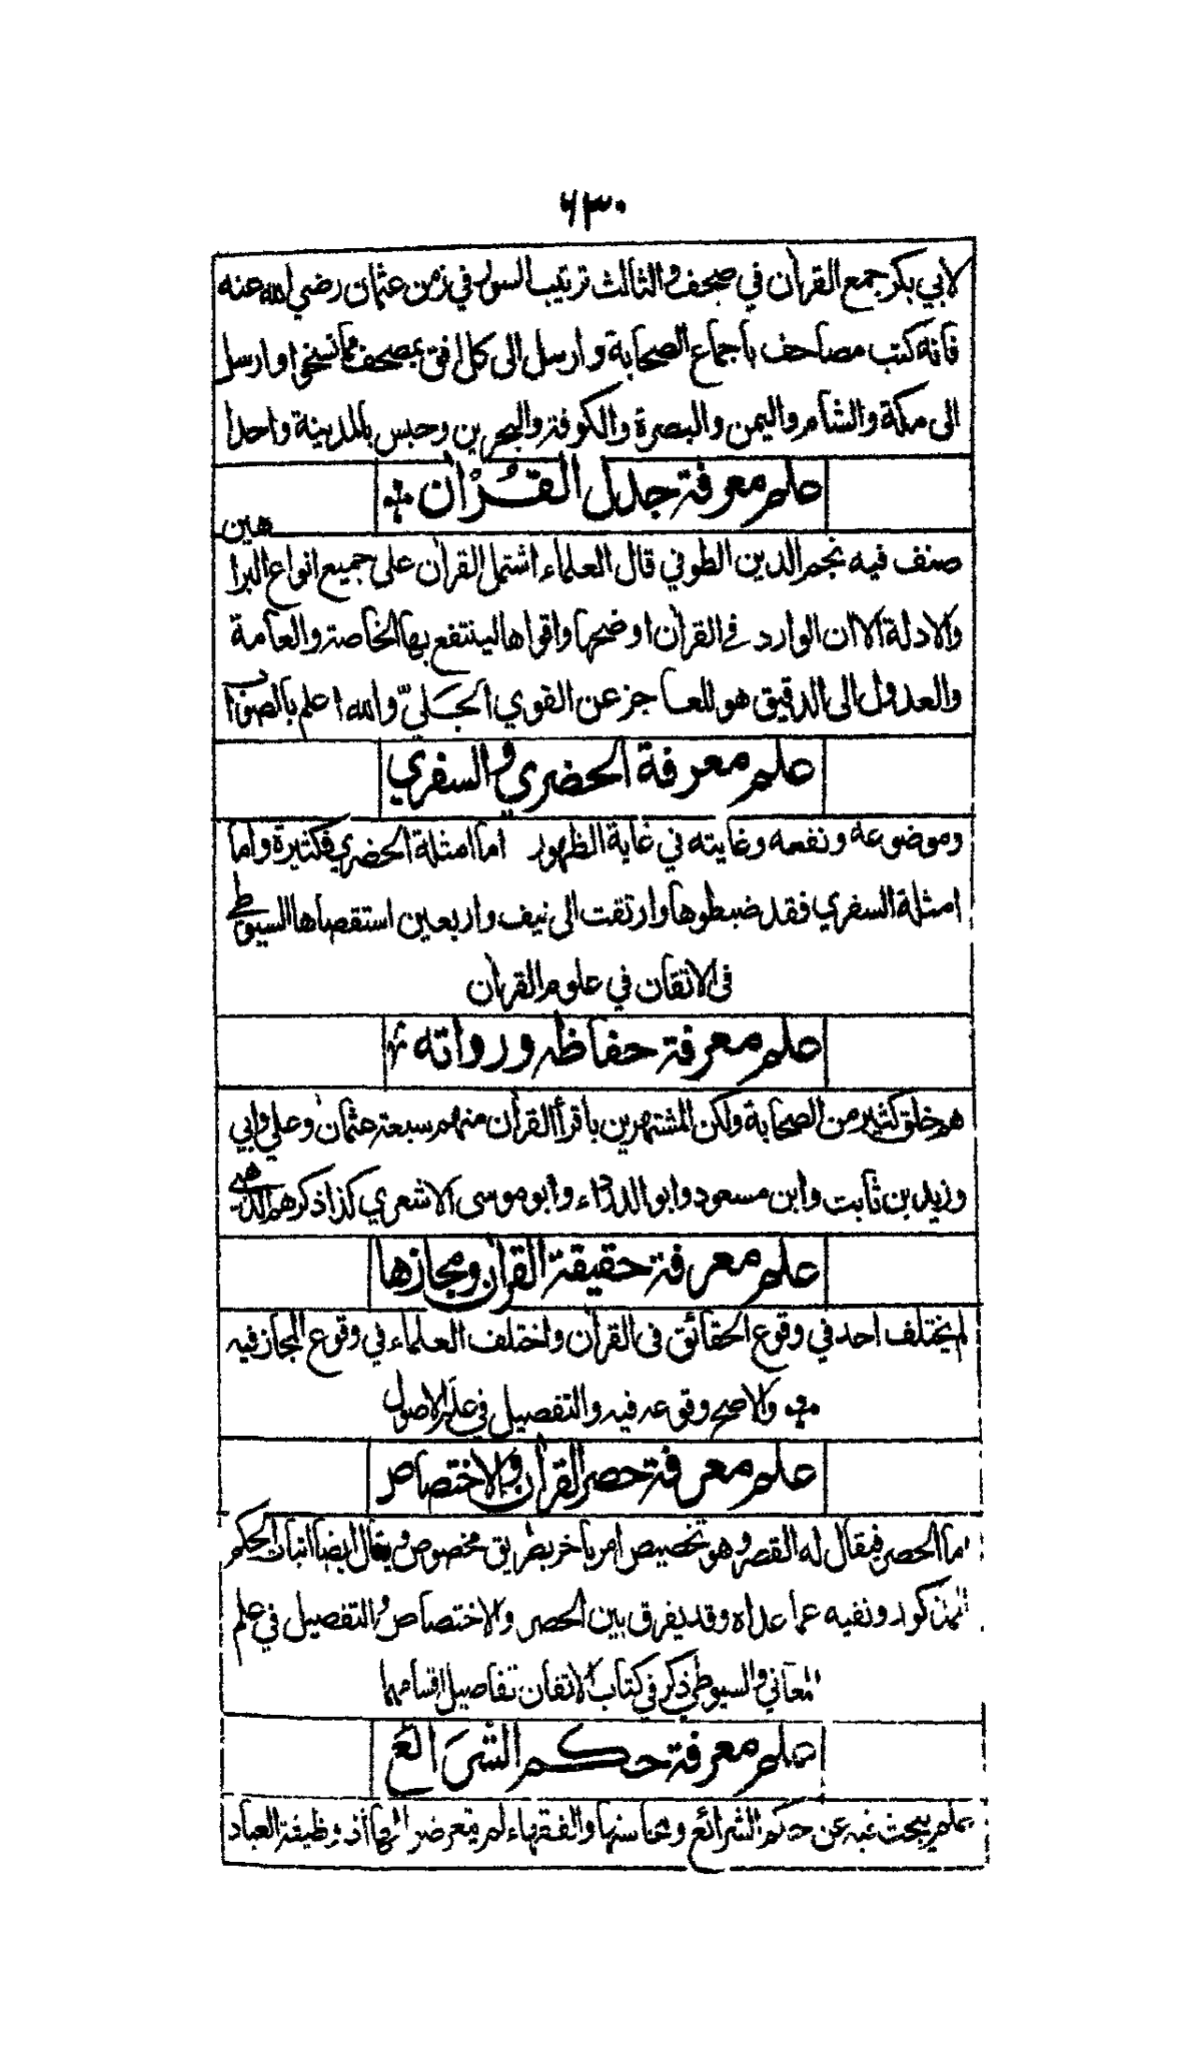 ٦٣٠
لابي بكر جمع القرآن في صحف والثالث ترتيب السور في زمن عثمان رضي الله عنه
فانه كتب مصاحف باجماع الصحابة وارسل الى كل افق بمصحف مما نسخوا وارسل
الى مكة والشام واليمن والبصرة والكوفة والبحرين وحبس بالمدينة واحدا
علم معرفة جدل القرآن
صنف فيه نجم الدين الطوفي قال العلماء اشتمل القرآن على جميع انواع البراهين
والادلة الا ان الوارد في القرآن اوضحها واقواها لينتفع بها الخاصة والعامة
والعدول الى الدقيق هو للعاجز عن القوي الجَليّ والله اعلم بالصواب
علم معرفة الحضري والسفري
وموضوعه ونفعه وغايته في غاية الظهور اما امثلة الحضري فكثيرة واما
امثلة السفري فقد ضبطوها وارتقت الى نيف واربعين استقصاها السيوطي
في الاتقان في علوم القرآن
علم معرفة حفاظه ورواته
هم خلق كثير من الصحابة ولكن المشتهرين باقرأ القرآن منهم سبعة عثمان وعلي وابي
وزيد بن ثابت وابن مسعود وابو الدرداء وابو موسى الاشعري كذا ذكرهم الذهبي
علم معرفة حقيقة القرآن ومجازها
لم يختلف احد في وقوع الحقائق في القرآن واختلف العلماء في وقوع المجاز فيه
والاصح وقوعه فيه والتفصيل في علم الاصول
علم معرفة حصر القرآن والاختصاص
اما الحصر فيقال له القصر وهو تخصيص امر باخر بطريق مخصوص ويقال ايضا اثبات الحكم
للمذكور ونفيه عما عداه وقد يفرق بين الحصر والاختصاص والتفصيل في علم
المعاني والسيوطي ذكر في كتاب الاتقان تفاصيل اقسامهما
علم معرفة حكم الشرائع
علم يبحث فيه عن حكم الشرائع ومحاسنها والفقهاء لم يتعرضوا لها اذ وظيفة العباد